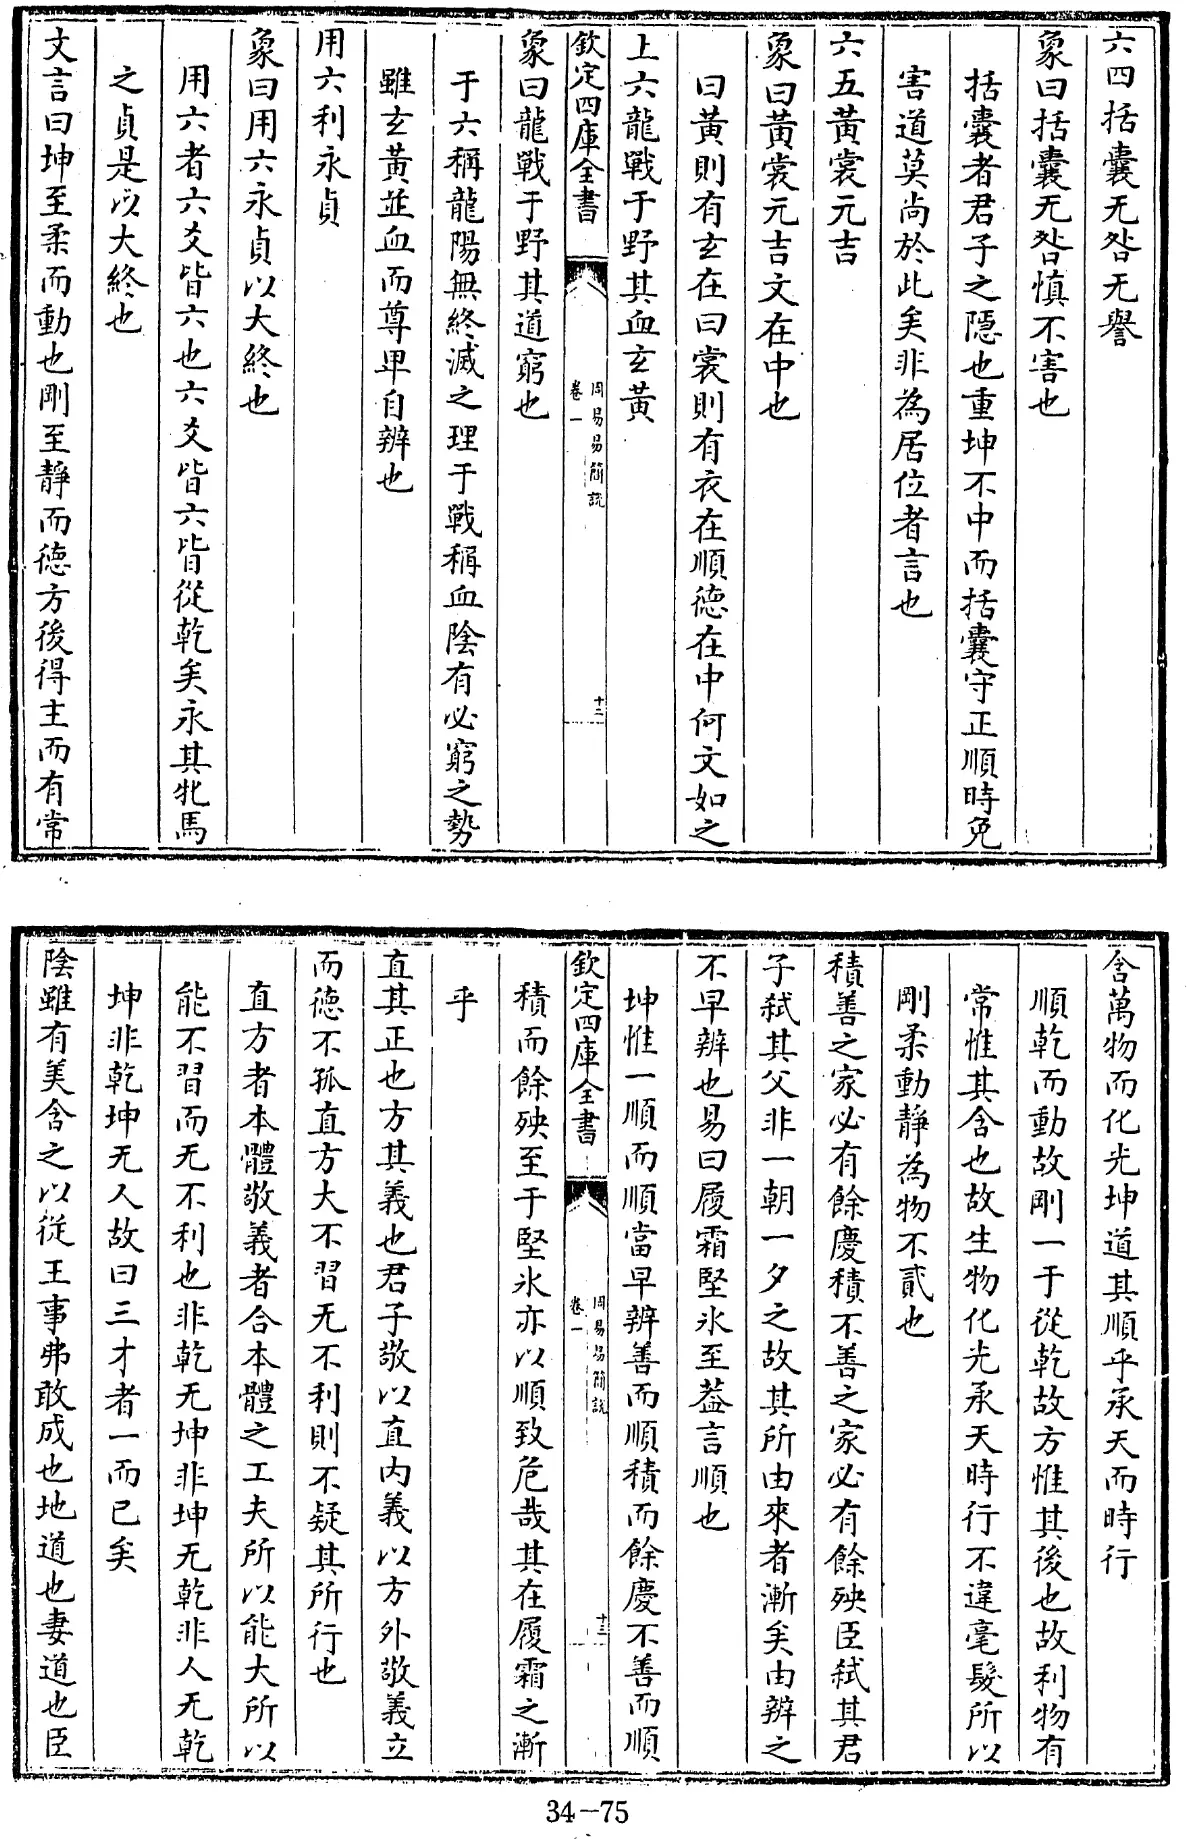 六四括囊无咎无譽
象曰括囊无咎慎不害也
括囊者君子之隱也重坤不中而括囊守正順時免
害道莫尚於此矣非為居位者言也
六五黃裳元吉
象曰黃裳元吉文在中也
曰黃則有玄在曰裳則有衣在順德在中何文如之
上六龍戰于野其血玄黃
欽定四庫全書
周易易簡說
卷一
十二
象曰龍戰于野其道窮也
于六稱龍陽無終滅之理于戰稱血陰有必窮之勢
雖玄黃並血而尊卑自辨也
用六利永貞
象曰用六永貞以大終也
用六者六爻皆六也六爻皆六皆從乾矣永其牝馬
之貞是以大終也
文言曰坤至柔而動也剛至靜而德方後得主而有常
含萬物而化光坤道其順乎承天而時行
順乾而動故剛一于從乾故方惟其後也故利物有
常惟其含也故生物化光承天時行不違毫髮所以
剛柔動靜為物不貳也
積善之家必有餘慶積不善之家必有餘殃臣弒其君
子弒其父非一朝一夕之故其所由來者漸矣由辨之
不早辨也易曰履霜堅氷至葢言順也
坤惟一順而順當早辨善而順積而餘慶不善而順
欽定四庫全書
周易易簡說
卷一
十三
積而餘殃至于堅氷亦以順致危哉其在履霜之漸
乎
直其正也方其義也君子敬以直內義以方外敬義立
而德不孤直方大不習无不利則不疑其所行也
直方者本體敬義者合本體之工夫所以能大所以
能不習而无不利也非乾无坤非坤无乾非人无乾
坤非乾坤无人故曰三才者一而已矣
陰雖有美含之以從王事弗敢成也地道也妻道也臣
34-75